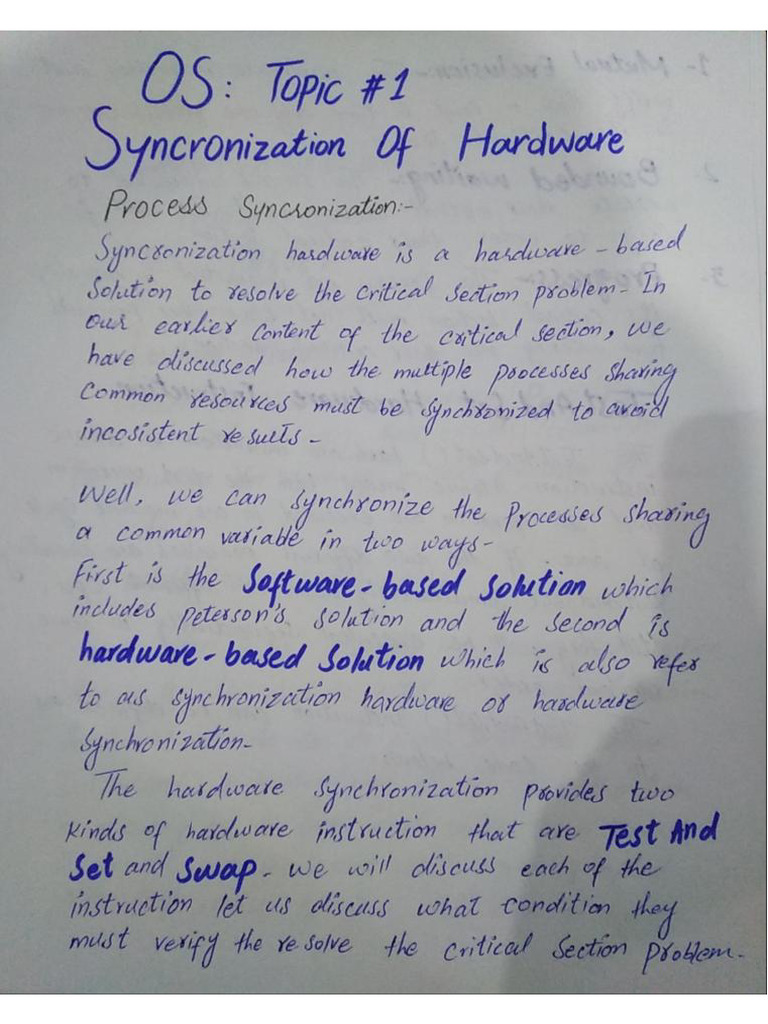 OS: Topic #1
Syncronization Of Hardware
Process Syncronization:-
Syncronization hardware is a hardware-based
Solution to resolve the critical section problem- In
our earlier content of the critical section, we
have discussed how the multiple processes sharing
common resources must be synchronized to avoid
incosistent results-
Well, we can synchronize the Processes sharing
a common variable in two ways-
First is the Software-based solution which
includes peterson's solution and the second is
hardware-based solution which is also refer
to as synchronization hardware or hardware
synchronization-
The hardware synchronization provides two
kinds of hardware instruction that are Test And
Set and Swap- we will discuss each of the
instruction let us discuss what condition they
must verify the resolve the critical Section problem-